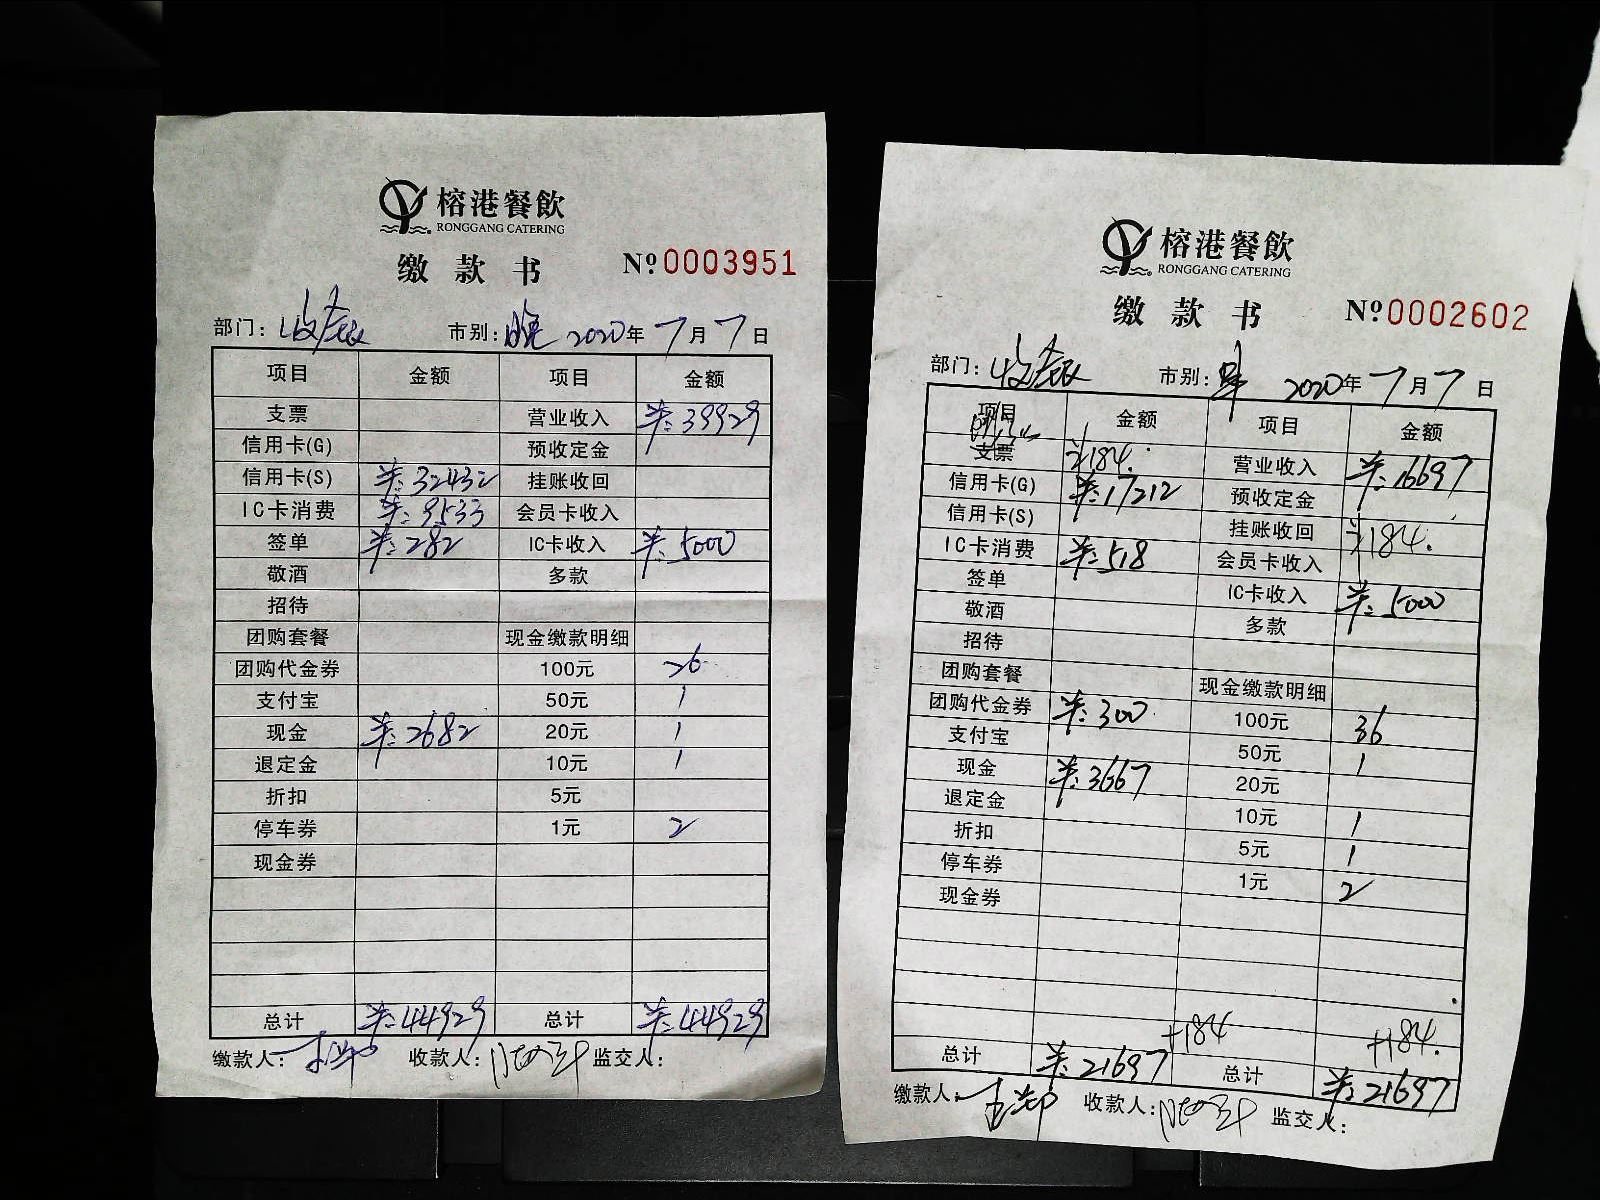 榕港餐飲
RONGGANG CATERING
缴款书 №0003951
部门：收银 市别：晚 2020年7月7日
项目 金额 项目 金额
支票 营业收入 羊:39929
信用卡(G) 预收定金
信用卡(S) 羊:32432 挂账收回
IC卡消费 羊:9533 会员卡收入
签单 羊:282 IC卡收入 羊:5000
敬酒 多款
招待
团购套餐 现金缴款明细
团购代金券 100元 26
支付宝 50元 1
现金 羊:2682 20元 1
退定金 10元 1
折扣 5元
停车券 1元 2
现金券
总计 羊:44929 总计 羊:44929
缴款人： 收款人： 监交人：
榕港餐飲
RONGGANG CATERING
缴款书 №0002602
部门：收银 市别：早 2020年7月7日
项目 金额 项目 金额
支票 184. 营业收入 羊:16697
信用卡(G) 羊:17212 预收定金
信用卡(S) 挂账收回 184.
IC卡消费 羊:518 会员卡收入
签单 IC卡收入 羊:5000
敬酒 多款
招待
团购套餐 现金缴款明细
团购代金券 羊:300 100元 36
支付宝 50元 1
现金 羊:3667 20元
退定金 10元 1
折扣 5元 1
停车券 1元 2
现金券
+184 +184.
总计 羊:21697 总计 羊:21697
缴款人： 收款人： 监交人：